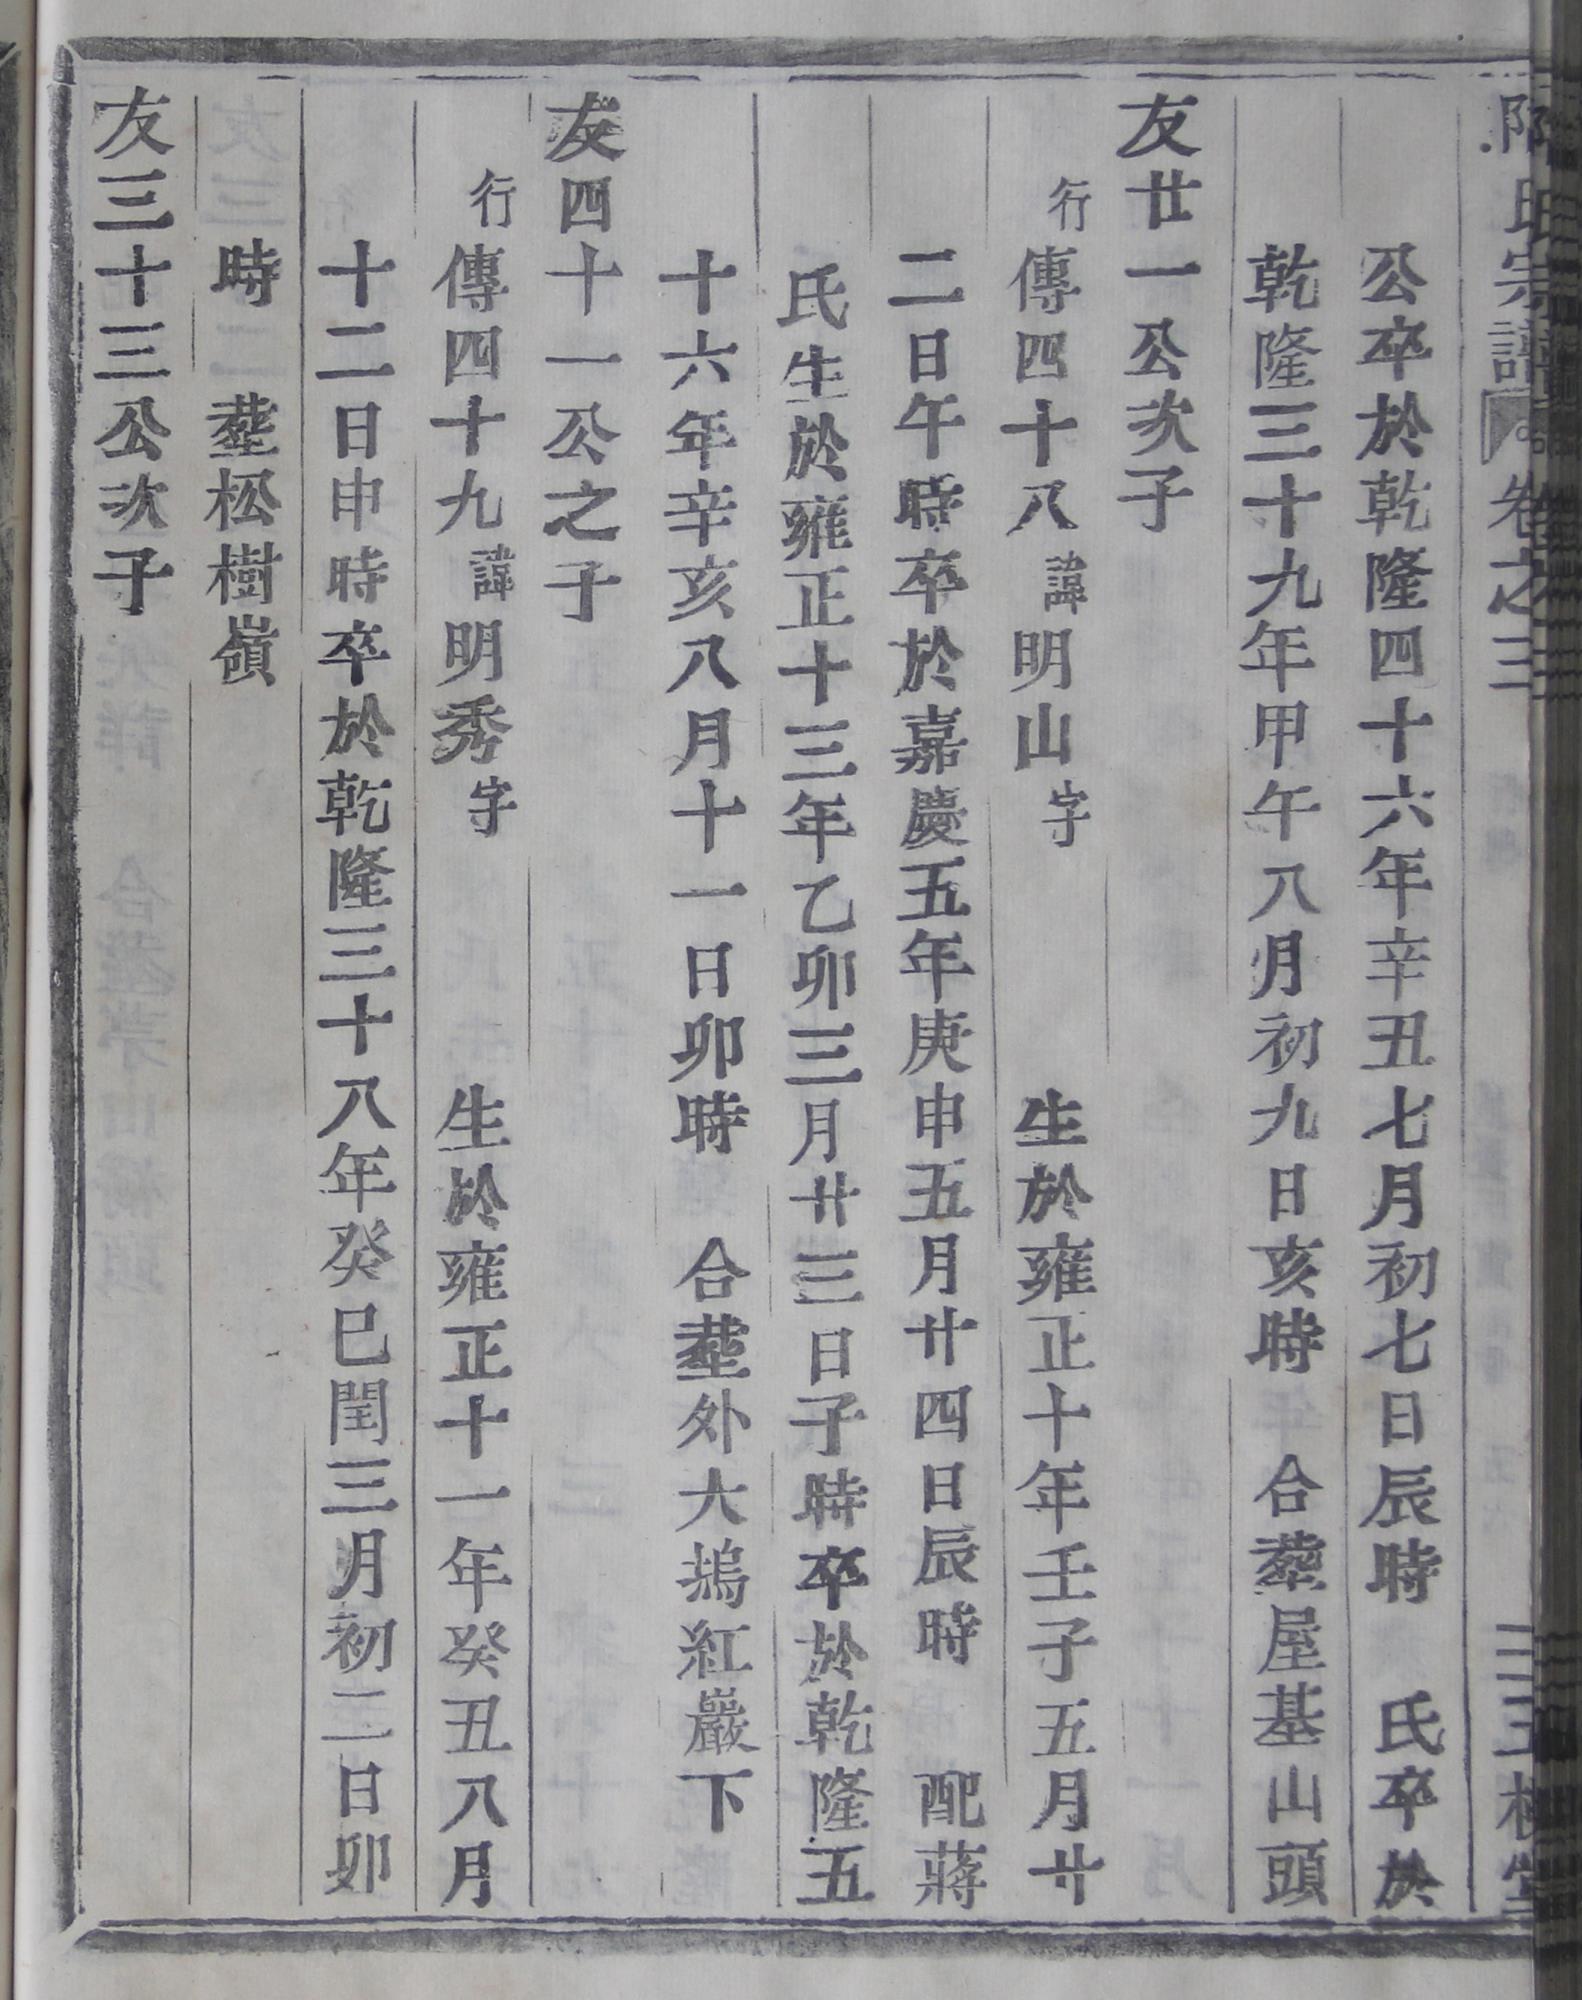 氏宗譜 卷之三
公卒於乾隆四十六年辛丑七月初七日辰時 氏卒於
乾隆三十九年甲午八月初九日亥時 合塟屋基山頭
友廿一公次子
行傳四十八諱明山字 生於雍正十年壬子五月廿
二日午時卒於嘉慶五年庚申五月廿四日辰時 配蔣
氏生於雍正十三年乙卯三月廿三日子時卒於乾隆五
十六年辛亥八月十一日卯時 合塟外大塢紅巖下
友四十一公之子
行傳四十九諱明秀字 生於雍正十一年癸丑八月
十二日申時卒於乾隆三十八年癸巳閏三月初二日卯
時 塟松樹嶺
友三十三公次子